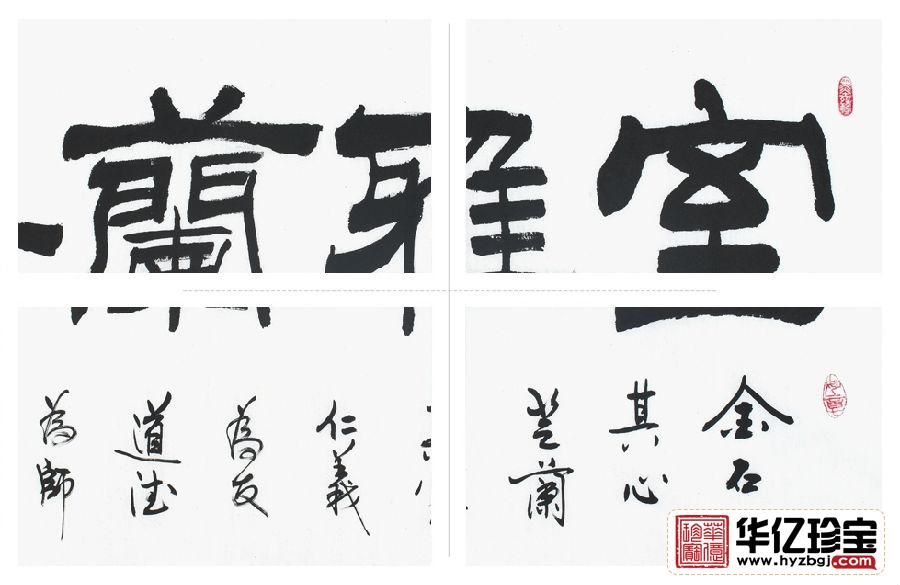 室雅蘭
金石
其心
芝蘭
仁義
為友
道德
為師
华亿珍宝
www.hyzbgj.com